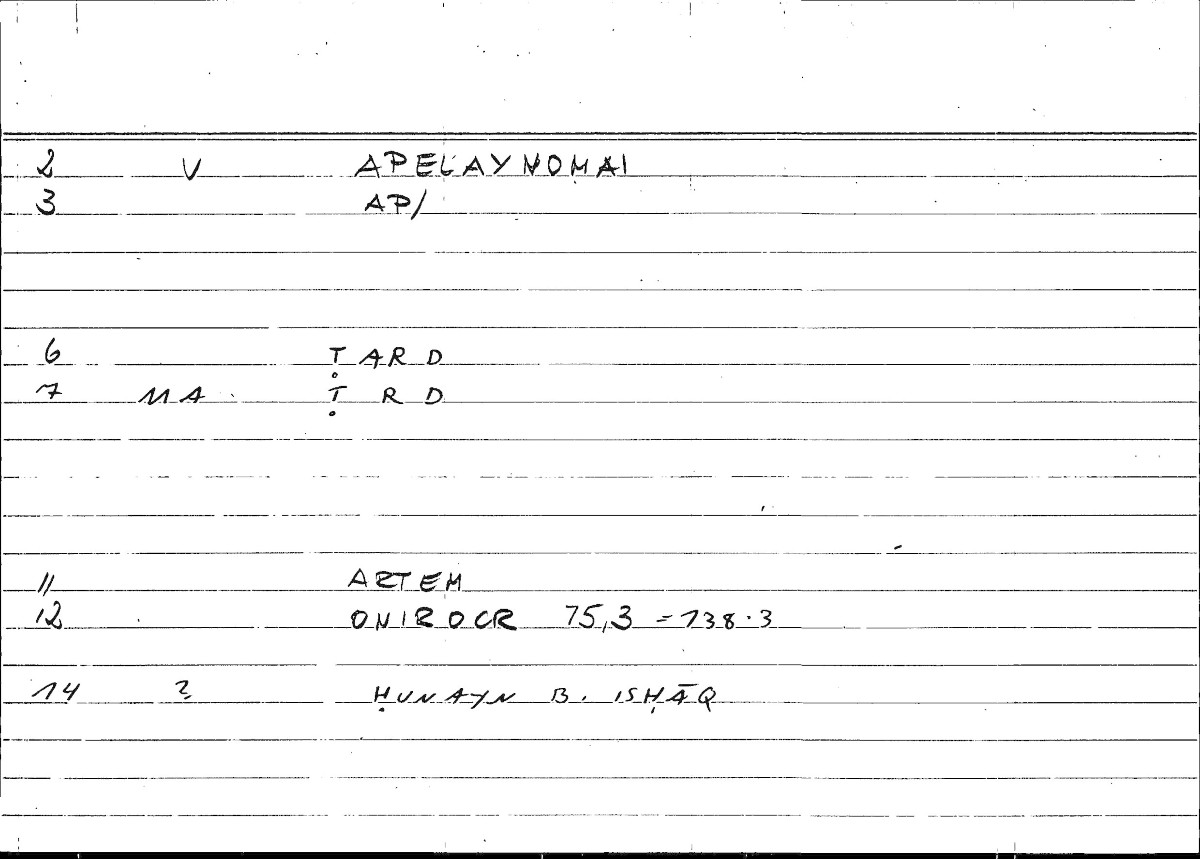 2 V APELAYNOMAI
3 AP/
6 ṬARD
7 MA ṬRD
11 ARTEM
12 ONIROCR 75,3 = 138.3
14 ? ḤUNAYN B. ISḤĀQ